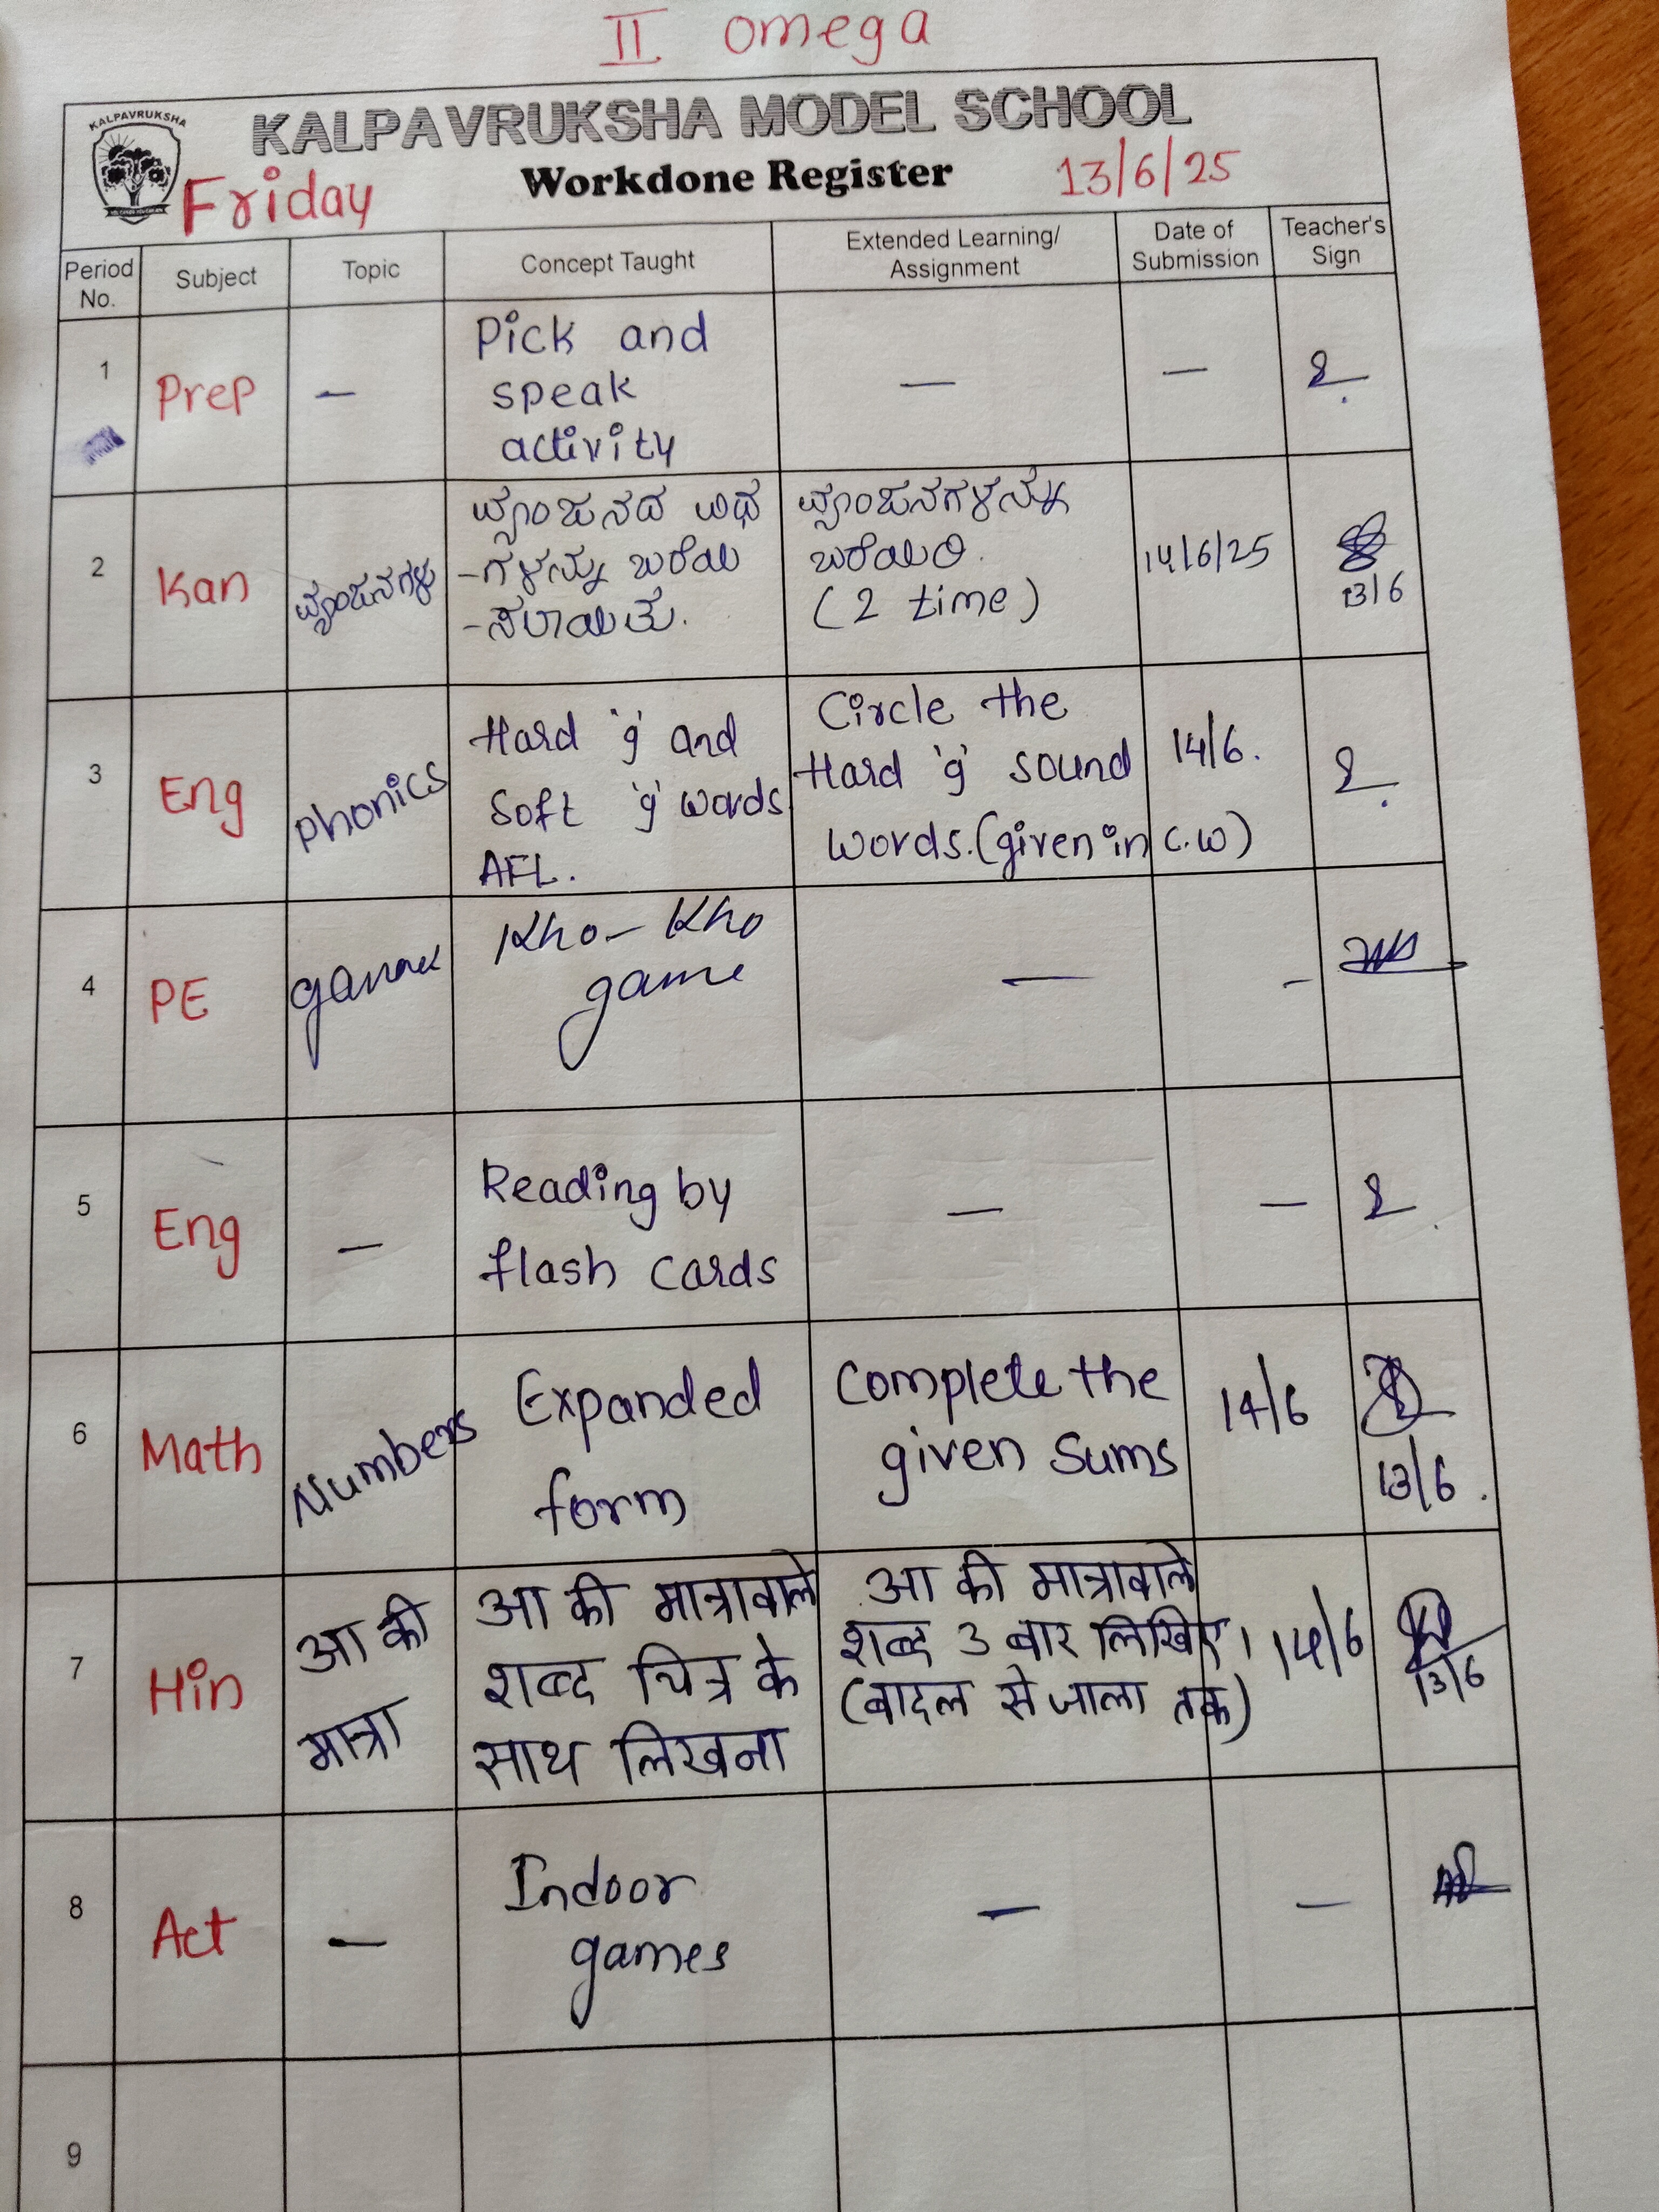 II omega
KALPAVRUKSHA
KALPAVRUKSHA MODEL SCHOOL
Friday
Workdone Register
13/6/25
Period No.
Subject
Topic
Concept Taught
Extended Learning/
Assignment
Date of
Submission
Teacher's
Sign
1
Prep
–
Pick and
speak
activity
–
–
2
Kan
ವ್ಯಂಜನಗಳು
ವ್ಯಂಜನದ ವಿಧ
-ಗಳನ್ನು ಬರೆಯ
ವ್ಯಂಜನಗಳನ್ನು
ಬರೆಯಿರಿ.
(2 time)
14/6/25
13/6
3
Eng
Phonics
Hard 'g' and
Soft 'g' words
AFL.
Circle the
Hard 'g' sound
words.(given in C.W)
14/6.
4
PE
Kho-Kho
game
–
–
5
Eng
–
Reading by
flash cards
–
–
6
Math
Numbers
Expanded
form
Complete the
given sums
14/6
13/6.
7
Hin
आ की
मात्रा
आ की मात्रावाले
शब्द चित्र के
साथ लिखना
आ की मात्रावाले
शब्द 3 बार लिखिए।
(बादल से जाला तक)
14/6
13/6
8
Act
–
Indoor
games
–
–
9